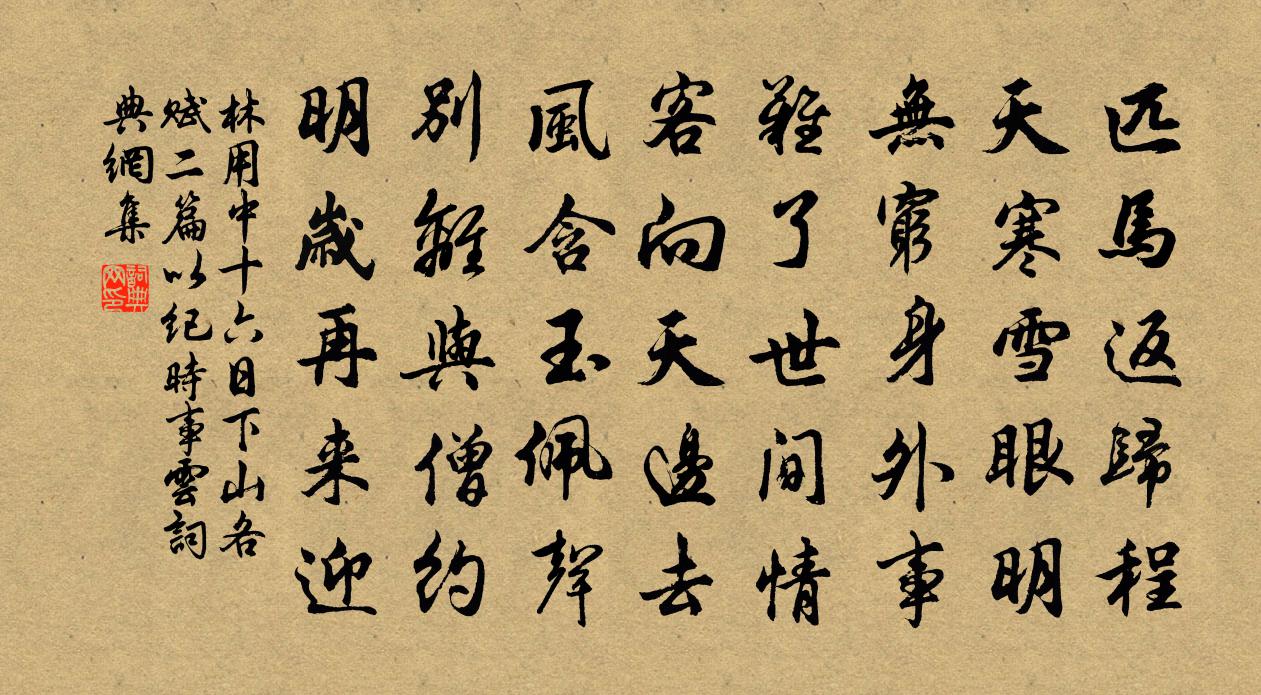 匹馬返歸程
天寒雪眼明
無窮身外事
難了世間情
客向天邊去
風含玉佩聲
別離與僧約
明歲再来迎
林用中十六日下山各
賦二篇以紀時事雲詞
典網集
詞典网印